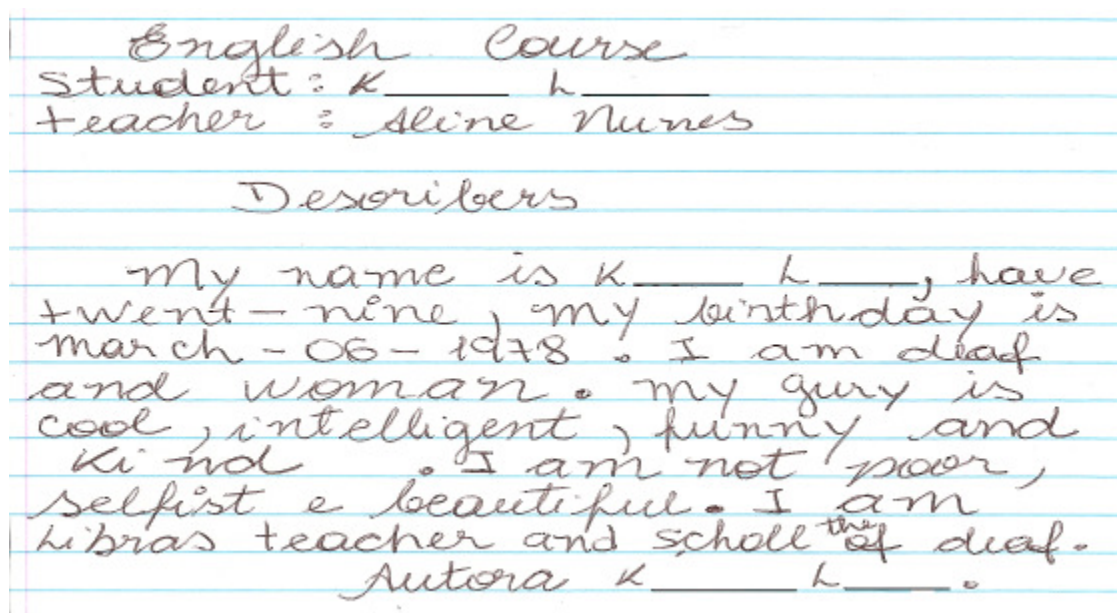 English Course
Student: K_____ L_____
teacher : Aline Nunes
Describers
My name is K_____ L____, have
twent-nine, my birthday is
march-06-1978. I am deaf
and woman. my gury is
cool, intelligent, funny and
Kind . I am not poor,
selfist e beautiful. I am
Libras teacher and scholl the of deaf.
Autora K_____ L____.